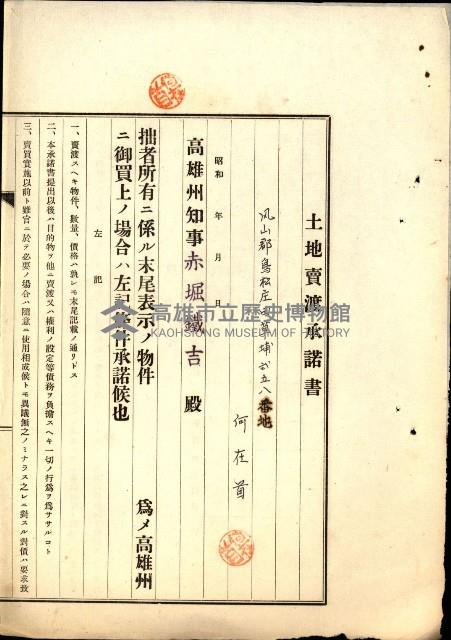 土地賣渡承諾書
鳳山郡鳥松庄
番地
何在首
昭和　年　月　日
高雄州知事赤堀鐵吉殿
拙者所有ニ係ル末尾表示ノ物件　為メ高雄州
ニ御買上ノ場合ハ左記條件承諾候也
左記
一、賣渡スヘキ物件、數量、價格ハ孰レモ末尾記載ノ通リトス
二、本承諾書提出以後ハ目的物ヲ他ニ賣渡又ハ權利ノ設定等債務ヲ負擔スヘキ一切ノ行為ヲ為ササルコト
三、賣買實施以前ト雖官ニ於テ必要ノ場合ハ隨意ニ使用相成候トモ異議無之ノミナラス之レニ對スル對價ハ要求致
高雄市立歷史博物館
KAOHSIUNG MUSEUM OF HISTORY